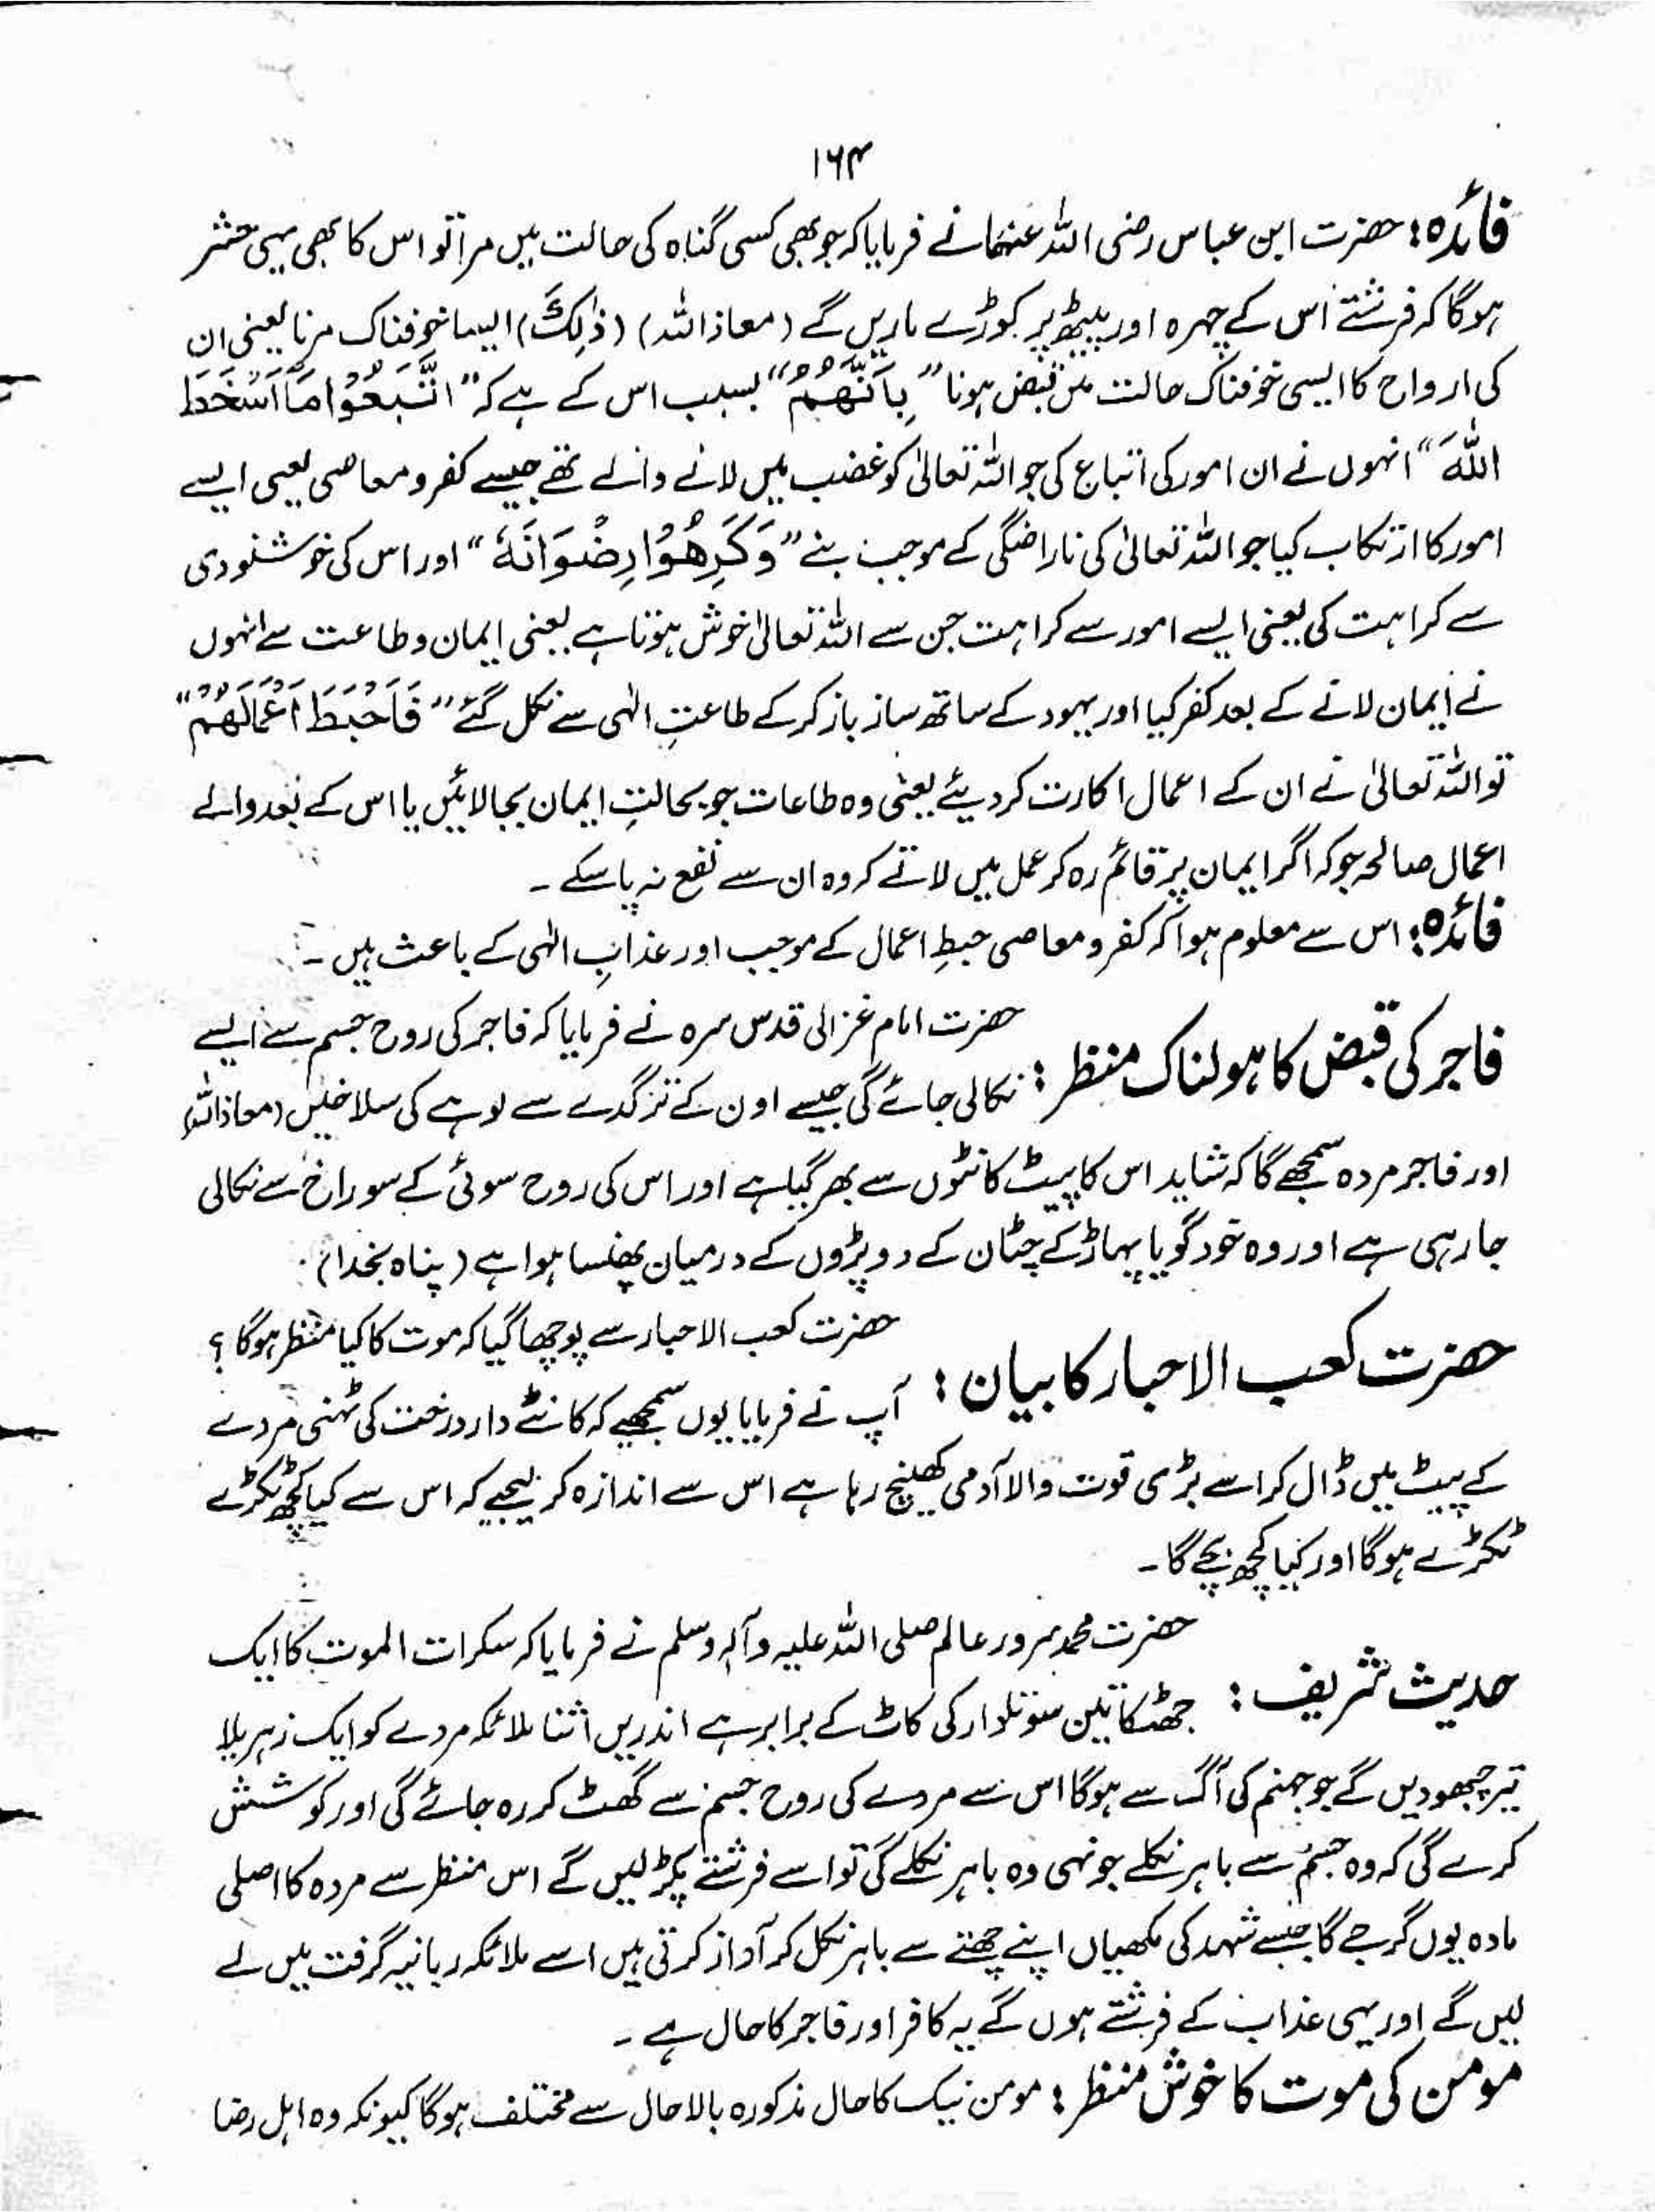 ۱۶۴
فائدہ: حضرت ابن عباس رضی اللہ عنھما نے فرمایا کہ جو بھی کسی گناہ کی حالت میں مرا تو اس کا بھی یہی حشر
ہوگا کہ فرشتے اس کے چہرہ اور پیٹھ پر کوڑے ماریں گے (معاذ اللہ) (ذٰلِكَ) ایسا خوفناک مرنا یعنی ان
کی ارواح کا ایسی خوفناک حالت میں قبض ہونا ”بِاَنَّهُمُ“ بسبب اس کے ہے کہ ”اتَّبَعُوْا مَآ اَسْخَطَ
اللّٰهَ“ انہوں نے ان امور کی اتباع کی جو اللہ تعالیٰ کو غضب میں لانے والے تھے جیسے کفر و معاصی یعنی ایسے
امور کا ارتکاب کیا جو اللہ تعالیٰ کی ناراضگی کے موجب بنے ”وَكَرِهُوْا رِضْوَانَهٗ“ اور اس کی خوشنودی
سے کراہت کی یعنی ایسے امور سے کراہت جن سے اللہ تعالیٰ خوش ہوتا ہے یعنی ایمان و طاعت سے انہوں
نے ایمان لانے کے بعد کفر کیا اور یہود کے ساتھ ساز باز کر کے طاعتِ الٰہی سے نکل گئے ”فَاَحْبَطَ اَعْمَالَهُمْ“
تو اللہ تعالیٰ نے ان کے اعمال اکارت کر دیئے یعنی وہ طاعات جو بحالتِ ایمان بجا لائیں یا اس کے بعد والے
اعمال صالحہ جو کہ اگر ایمان پر قائم رہ کر عمل میں لاتے کہ وہ ان سے نفع نہ پا سکے ۔
فائدہ: اس سے معلوم ہوا کہ کفر و معاصی حبطِ اعمال کے موجب اور عذابِ الٰہی کے باعث ہیں ۔
فاجر کی قبض کا ہولناک منظر : حضرت امام غزالی قدس سرہ نے فرمایا کہ فاجر کی روح جسم سے ایسے
نکالی جائے گی جیسے اون کے تر گدے سے لوہے کی سلاخیں (معاذ اللہ)
اور فاجر مردہ سمجھے گا کہ شاید اس کا پیٹ کانٹوں سے بھر گیا ہے اور اس کی روح سوئی کے سوراخ سے نکالی
جا رہی ہے اور وہ خود گویا پہاڑ کے چٹان کے دو پڑوں کے درمیان پھنسا ہوا ہے (پناہ بخدا)
حضرت کعب الاحبار کا بیان : حضرت کعب الاحبار سے پوچھا گیا کہ موت کا کیا منظر ہوگا ؟
آپ نے فرمایا یوں سمجھیے کہ کانٹے دار درخت کی ٹہنی مردے
کے پیٹ میں ڈال کر اسے بڑی قوت والا آدمی کھینچ رہا ہے اس سے اندازہ کر لیجیے کہ اس سے کیا کچھ ٹکڑے
ٹکڑے ہوگا اور کیا کچھ بچے گا ۔
حدیث شریف : حضرت محمد سرور عالم صلی اللہ علیہ وآلہ وسلم نے فرمایا کہ سکرات الموت کا ایک
جھٹکا تین سو تلوار کی کاٹ کے برابر ہے اندریں اثنا ملائکہ مردے کو ایک زہریلا
تیر چبھو دیں گے جو جہنم کی آگ سے ہوگا اس سے مردے کی روح جسم سے گھٹ کر رہ جائے گی اور کوشش
کرے گی کہ وہ جسم سے باہر نکلے جونہی وہ باہر نکلے گی تو اسے فرشتے پکڑ لیں گے اس منظر سے مردہ کا اصلی
مادہ یوں گرجے گا جیسے شہد کی مکھیاں اپنے چھتے سے باہر نکل کر آواز کرتی ہیں اسے ملائکہ ربانیہ گرفت میں لے
لیں گے اور یہی عذاب کے فرشتے ہوں گے یہ کافر اور فاجر کا حال ہے ۔
مومن کی موت کا خوش منظر : مومن نیک کا حال مذکورہ بالا حال سے مختلف ہوگا کیونکہ وہ اہل رضا